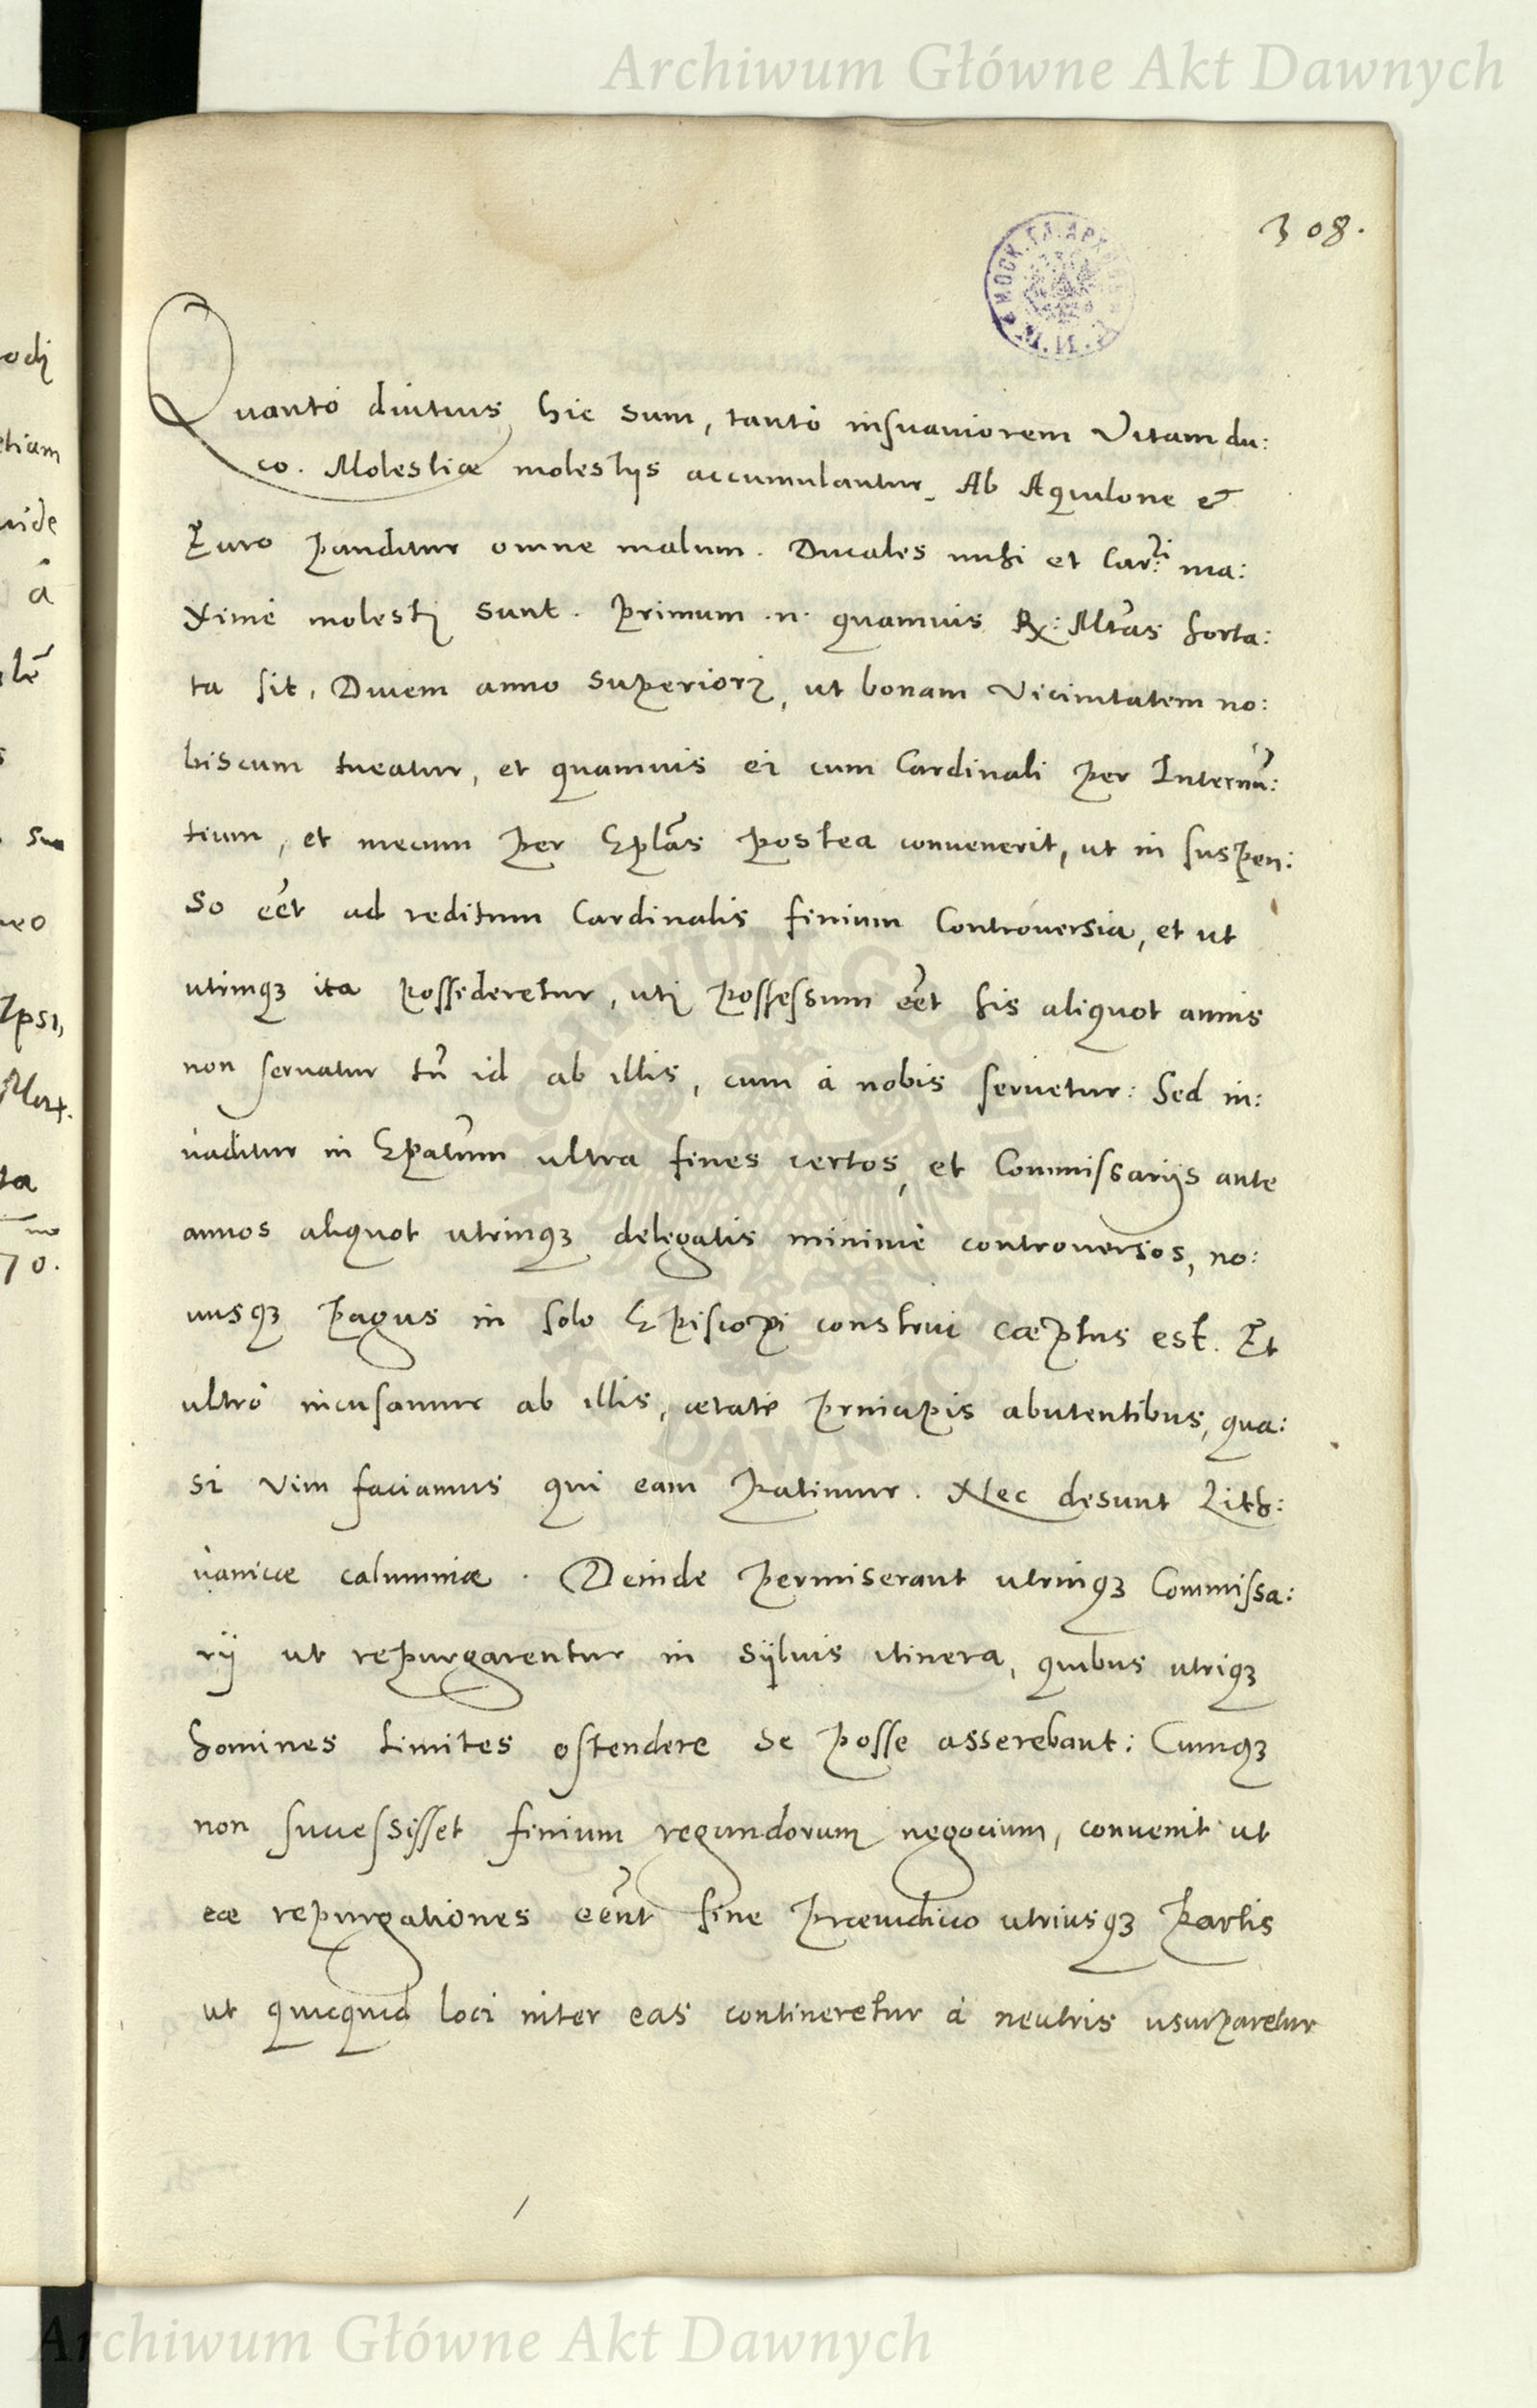 Archiwum Główne Akt Dawnych
308.
Quantò diutius hic sum, tantò insuauiorem Vitam du:
co. Molestiæ molestijs accumulantur. Ab Aquilone et
Euro panditur omne malum. Ducales mihi et Car:li ma:
ximè molesti sunt. Primum .n. quamuis R: Mtas horta:
ta sit, Ducem anno superiori, ut bonam Vicinitatem no:
biscum tueatur, et quamuis ei cum Cardinali per Internū:
tium, et mecum per Eplas postea conuenerit, ut in suspen:
so eet ad reditum Cardinalis finium Controuersia, et ut
utrinq; ita possideretur, uti possessum eet his aliquot annis
non seruatur tn id ab illis, cum à nobis seruetur: Sed in:
uaditur in Epatum ultra fines certos, et Commissarijs ante
annos aliquot utrinq; delegatis minimè controuersos, no:
uusq; pagus in solo Episcopi construi cæptus est. Et
ultrò incusamur ab illis, ætate principis abutentibus, qua:
si Vim faciamus qui eam patimur. Nec desunt Lith:
uanicæ calumniæ. Deinde permiserant utrinq; Commissa:
rij ut repurgarentur in syluis itinera, quibus utriq;
homines limites ostendere se posse asserebant: Cumq;
non successisset finium regundorum negocium, conuenit ut
eæ repurgationes eent sine præiudicio utriusq; partis
ut quicquid loci inter eas contineretur à neutris usurparetur
Archiwum Główne Akt Dawnych